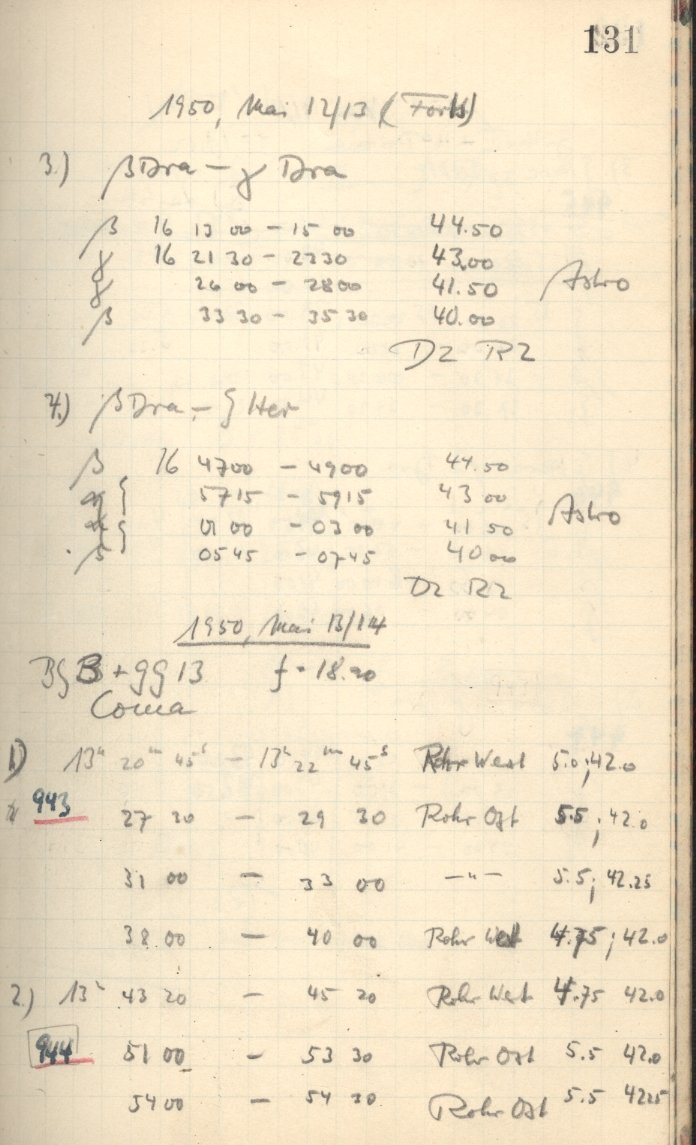 131
1950, Mai 12/13 (Forts)
3.) β Dra — γ Dra
β 16 13 00 — 15 00 44.50
γ 16 21 30 — 23 30 43.00
γ 26 00 — 28 00 41.50 Astro
β 33 30 — 35 30 40.00
D2 R2
4.) β Dra — ζ Her
β 16 47 00 — 49 00 44.50
ζ 57 15 — 59 15 43 00
ζ 01 00 — 03 00 41 50 Astro
β 05 45 — 07 45 40 00
D2 R2
1950, Mai 13/14
B + gg 13 f = 18.20
Coma
1) 13h 20m 45s — 13h 22m 45s Rohr West 5.0; 42.0
943 27 30 — 29 30 Rohr Ost 5.5; 42.0
31 00 — 33 00 —"— 5.5; 42.25
38 00 — 40 00 Rohr West 4.75; 42.0
2.) 13h 43 20 — 45 20 Rohr West 4.75 42.0
944 51 00 — 53 30 Rohr Ost 5.5 42.0
54 00 — 54 30 Rohr Ost 5.5 42.25